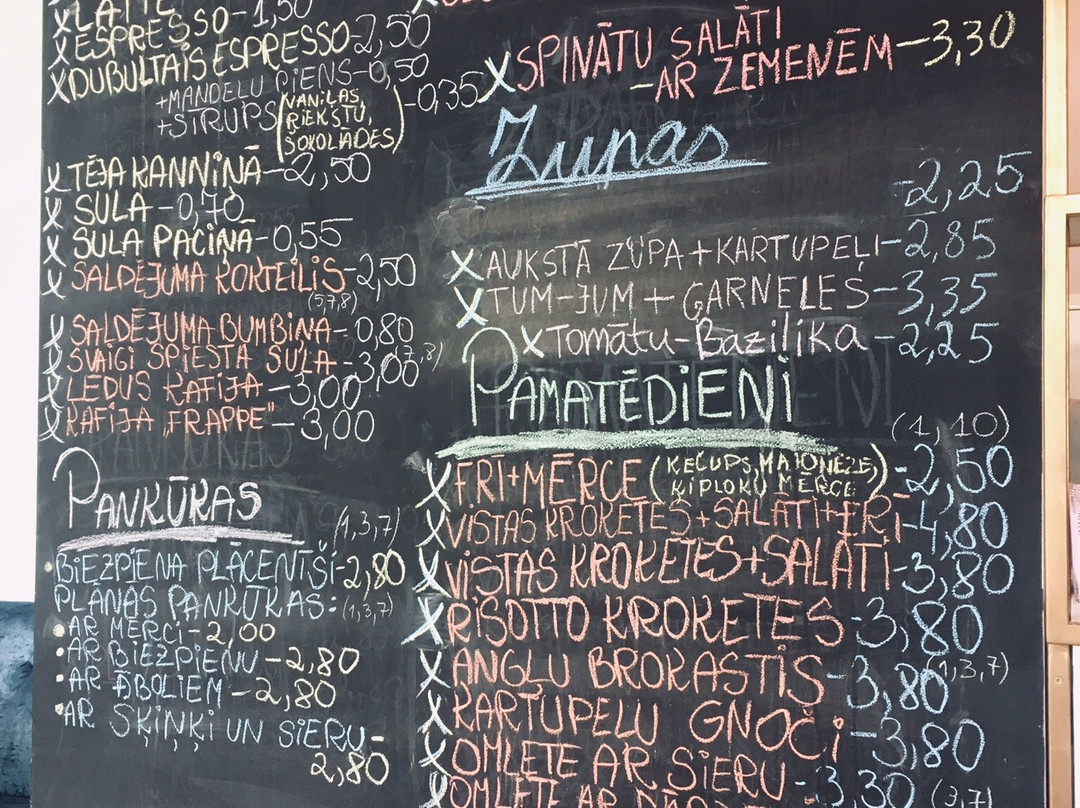 LATTE
ESPRESSO-1,50
DUBULTAIS ESPRESSO-2,50
+MANDEĻU PIENS-0,50
+SĪRUPS (VANIĻAS, RIEKSTU, ŠOKOLĀDES)-0,35
TĒJA KANNIŅĀ-2,50
SULA-0,70
SULA PACIŅĀ-0,55
SALDĒJUMA KOKTEILIS-2,50
(5,7,8)
SALDĒJUMA BUMBIŅA-0,80
SVAIGI SPIESTA SULA-3,00
LEDUS KAFIJA-3,00
KAFIJA „FRAPPE"-3,00
PANKŪKAS
(1,3,7)
BIEZPIENA PLĀCENĪŠI-2,80
PLĀNĀS PANKŪKAS: (1,3,7)
AR MĒRCI-2,00
AR BIEZPIENU-2,80
AR ĀBOLIEM-2,80
AR ŠĶIŅĶI UN SIERU-
2,80
SPINĀTU SALĀTI
-AR ZEMENĒM-3,30
Zupas
-2,25
AUKSTĀ ZUPA+KARTUPEĻI-2,85
TUM-JUM+GARNELES-3,35
Tomātu-Bazilika-2,25
PAMATĒDIENI
(1,10)
FRĪ+MĒRCE (KEČUPS, MAJONĒZE, ĶIPLOKU MĒRCE)-2,50
VISTAS KROKETES+SALĀTI+FRĪ-4,80
VISTAS KROKETES+SALĀTI-3,80
RISOTTO KROKETES-3,80
ANGĻU BROKASTIS-3,80 (1,3,7)
KARTUPEĻU GNOČI-3,80
OMLETE AR SIERU-3,30 (3,7)
OMLETE AR